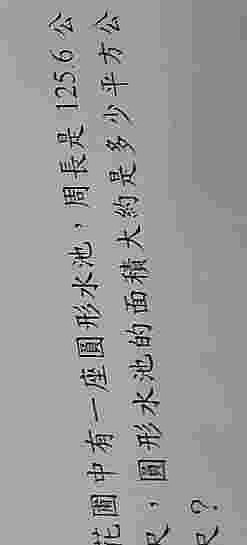 花園中有一座圓形水池，周長是 125.6 公
尺，圓形水池的面積大約是多少平方公
尺？